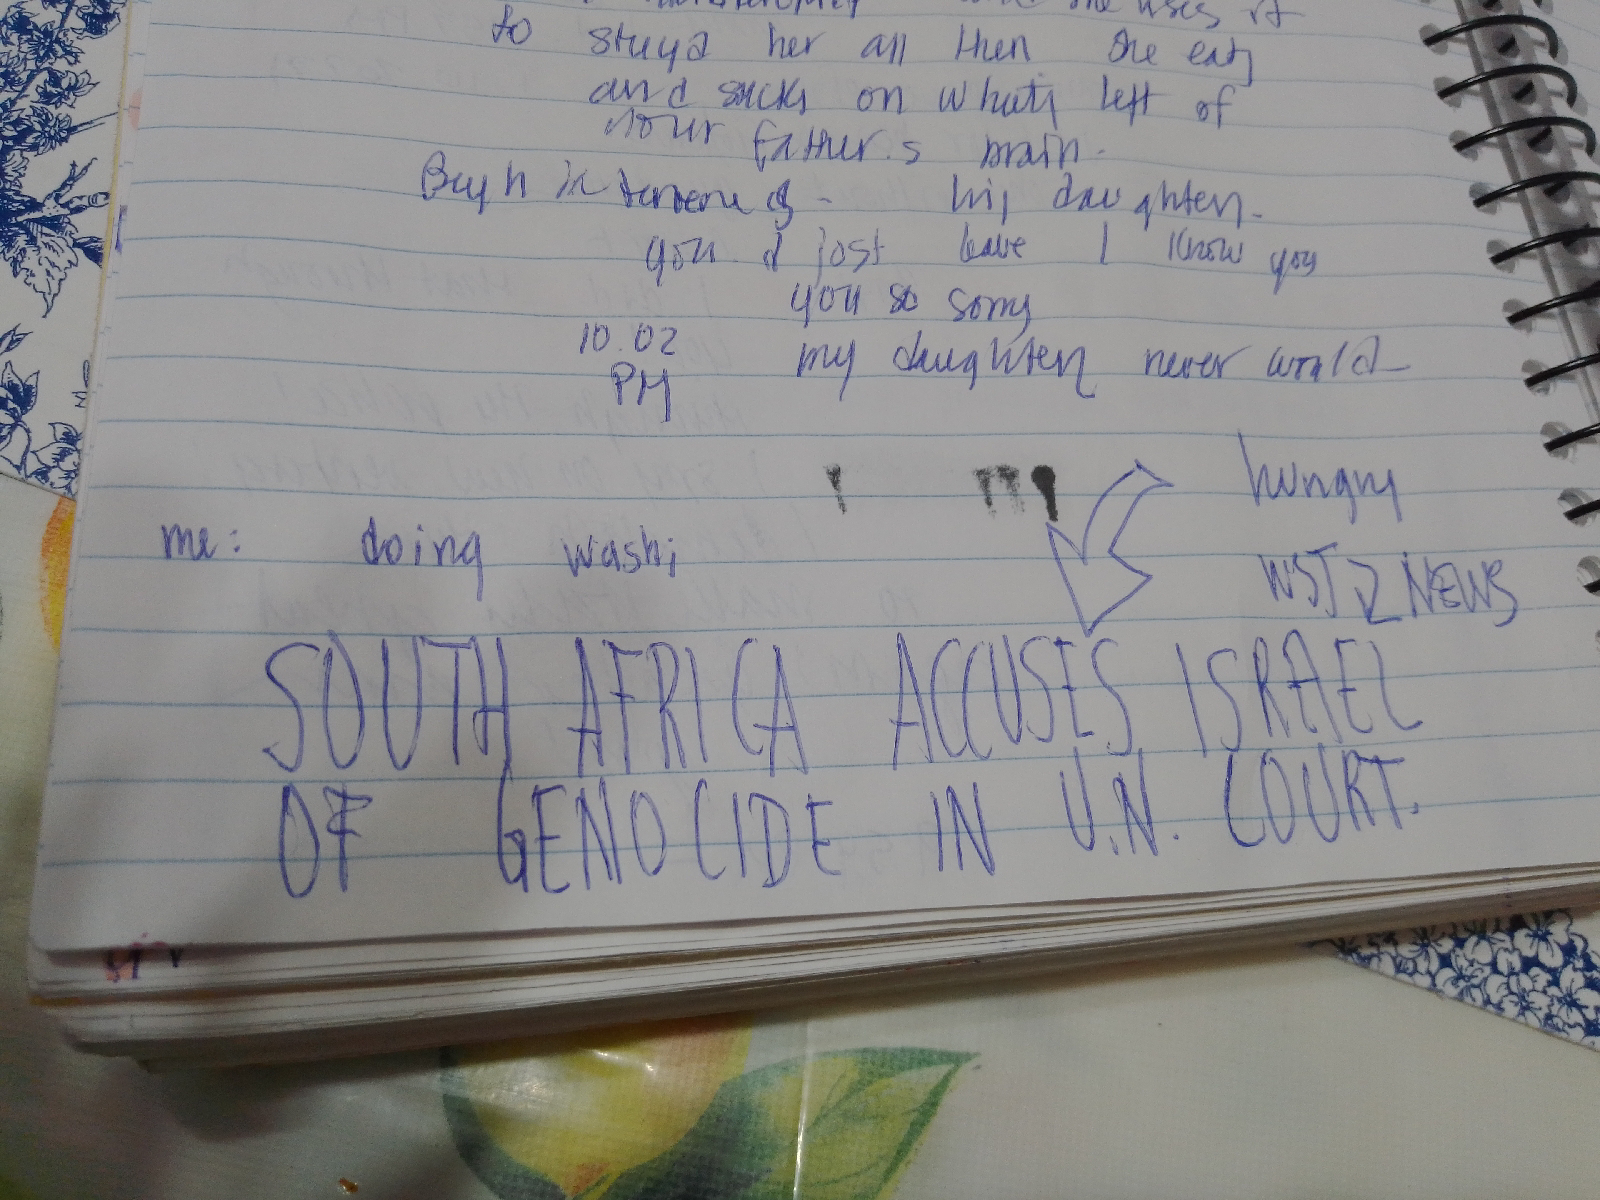 to her all then she eats
and sucks on what's left of
your father.s brain.
his daughter.
you d just leave I know you
you so sorry
10.02
PM
my daughter never would
hungry
me: doing washi
WSJ 2 NEWS
SOUTH AFRICA ACCUSES ISRAEL
OF GENOCIDE IN U.N. COURT.